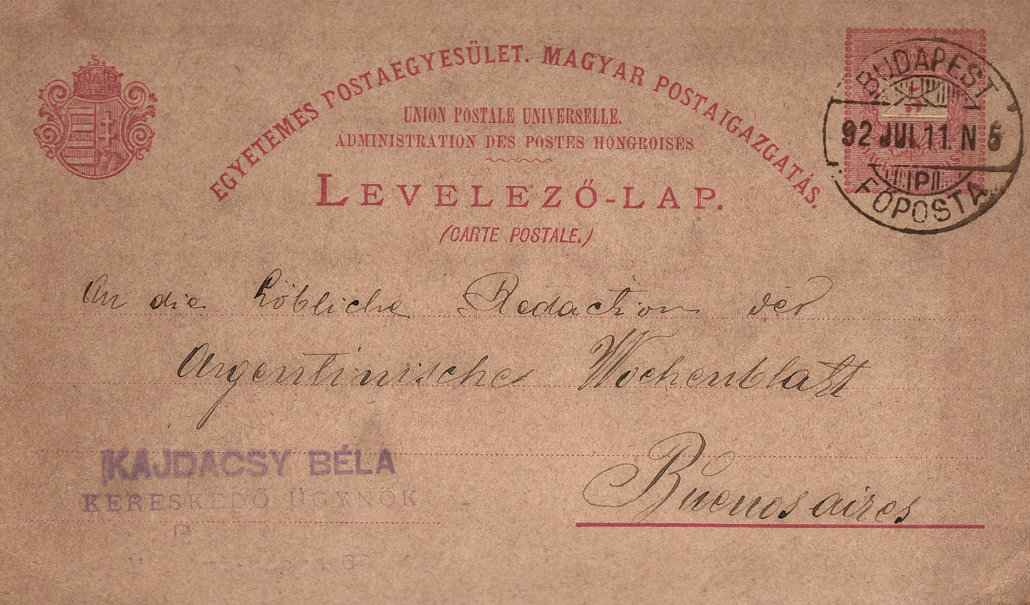 EGYETEMES POSTAEGYESÜLET. MAGYAR POSTAIGAZGATÁS.
UNION POSTALE UNIVERSELLE.
ADMINISTRATION DES POSTES HONGROISES
LEVELEZŐ-LAP.
(CARTE POSTALE.)
BUDAPEST
92 JUL 11. N 5
FŐPOSTA
An die Löbliche Redaction der
Argentinisches Wochenblatt
Buenos aires
KAJDACSY BÉLA
KERESKEDŐ ÜGYNÖK